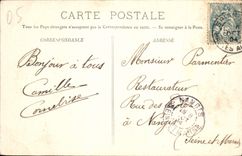 05
CARTE POSTALE
Tous les Pays étrangers n'acceptent pas la correspondance au recto. Se renseigner à la Poste
CORRESPONDANCE
ADRESSE
Bonjour à tous
Camille
Monsieur Parmentier
Restaurateur
Rue des
à Nangis
Seine et Marne
NANGIS